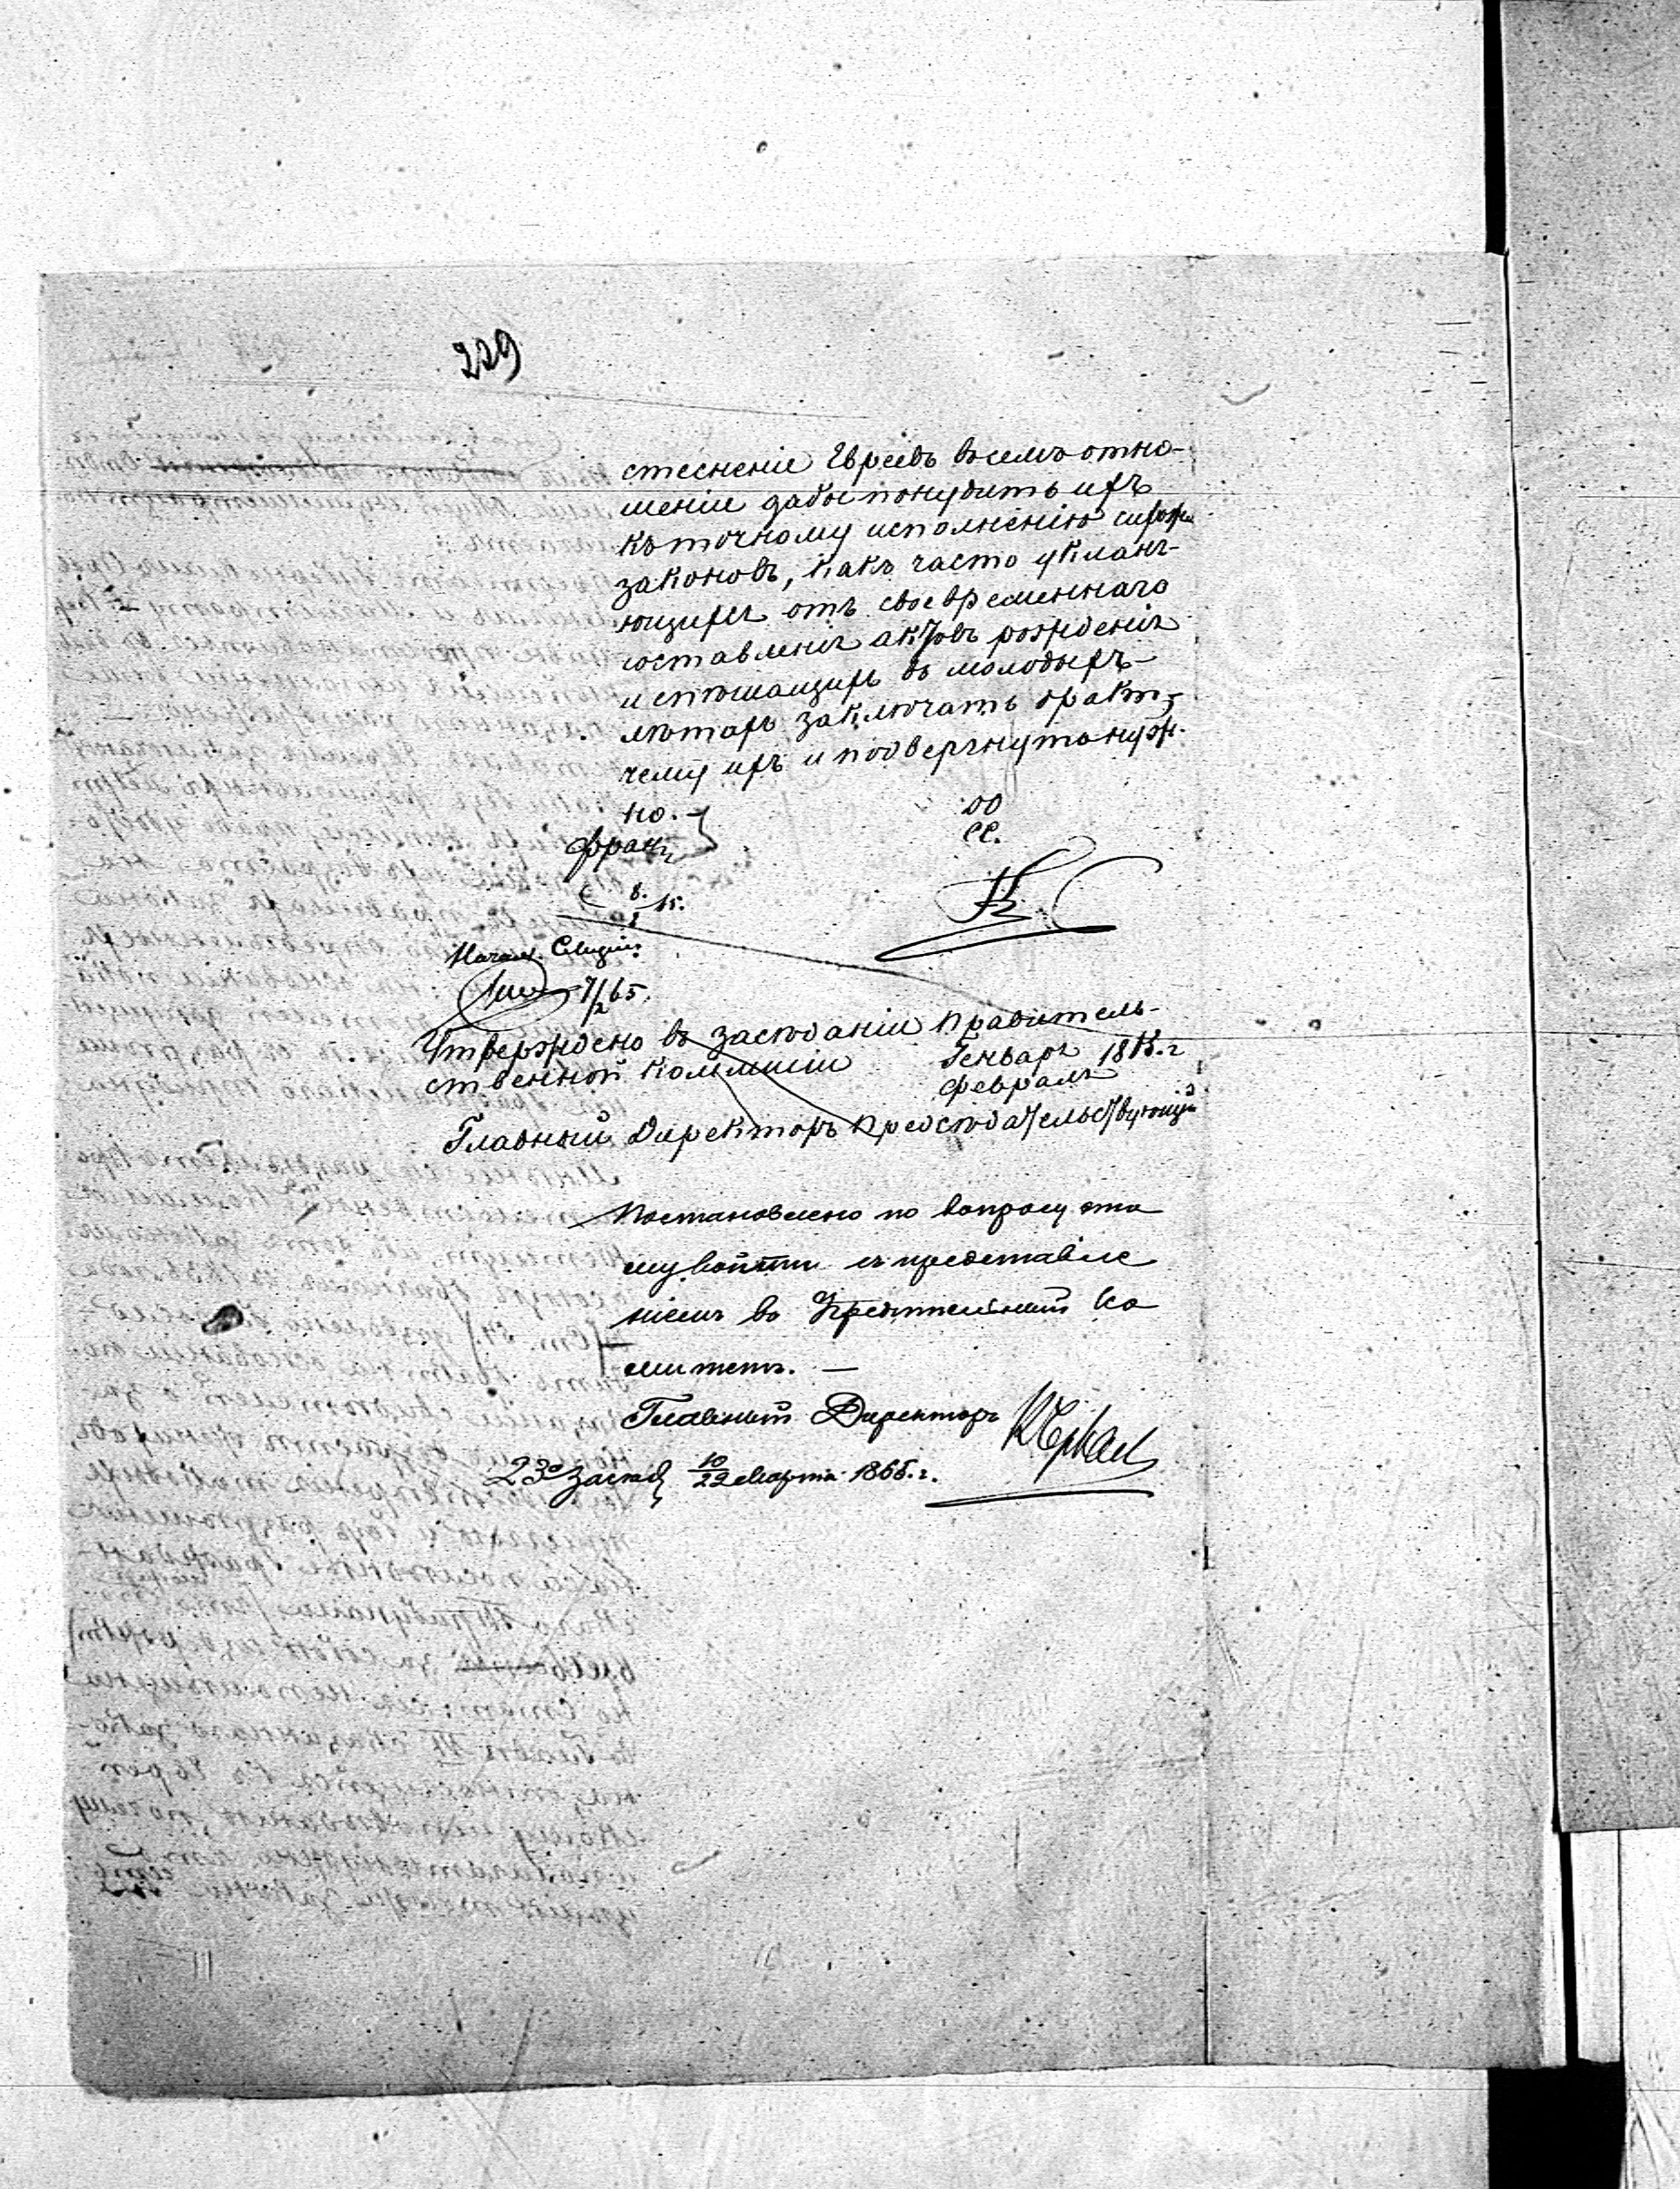 229
стесненіе Евреевъ въ семъ отно-
шеніи дабы понудить ихъ
къ точному исполненію сихъ
законовъ, какъ часто уклоня-
ющихся отъ своевременнаго
составленія актовъ рожденія
и спѣшащихъ въ молодыхъ
лѣтахъ заключать бракъ,
чему ихъ и подвергнуть нуж-
но.
Начал. Секціи
7/2 65.
Утверждено въ засѣданіи Правитель-
ственной Коммисіи Генваря 186 г
Февраля
Главный Директоръ Предсѣдательствующій
Постановлено по вопросу это
му войти съ представле
ніемъ въ Учредительный Ко
митетъ. —
Главный Директоръ
23е засѣд 10/22 Марта 1865 г.